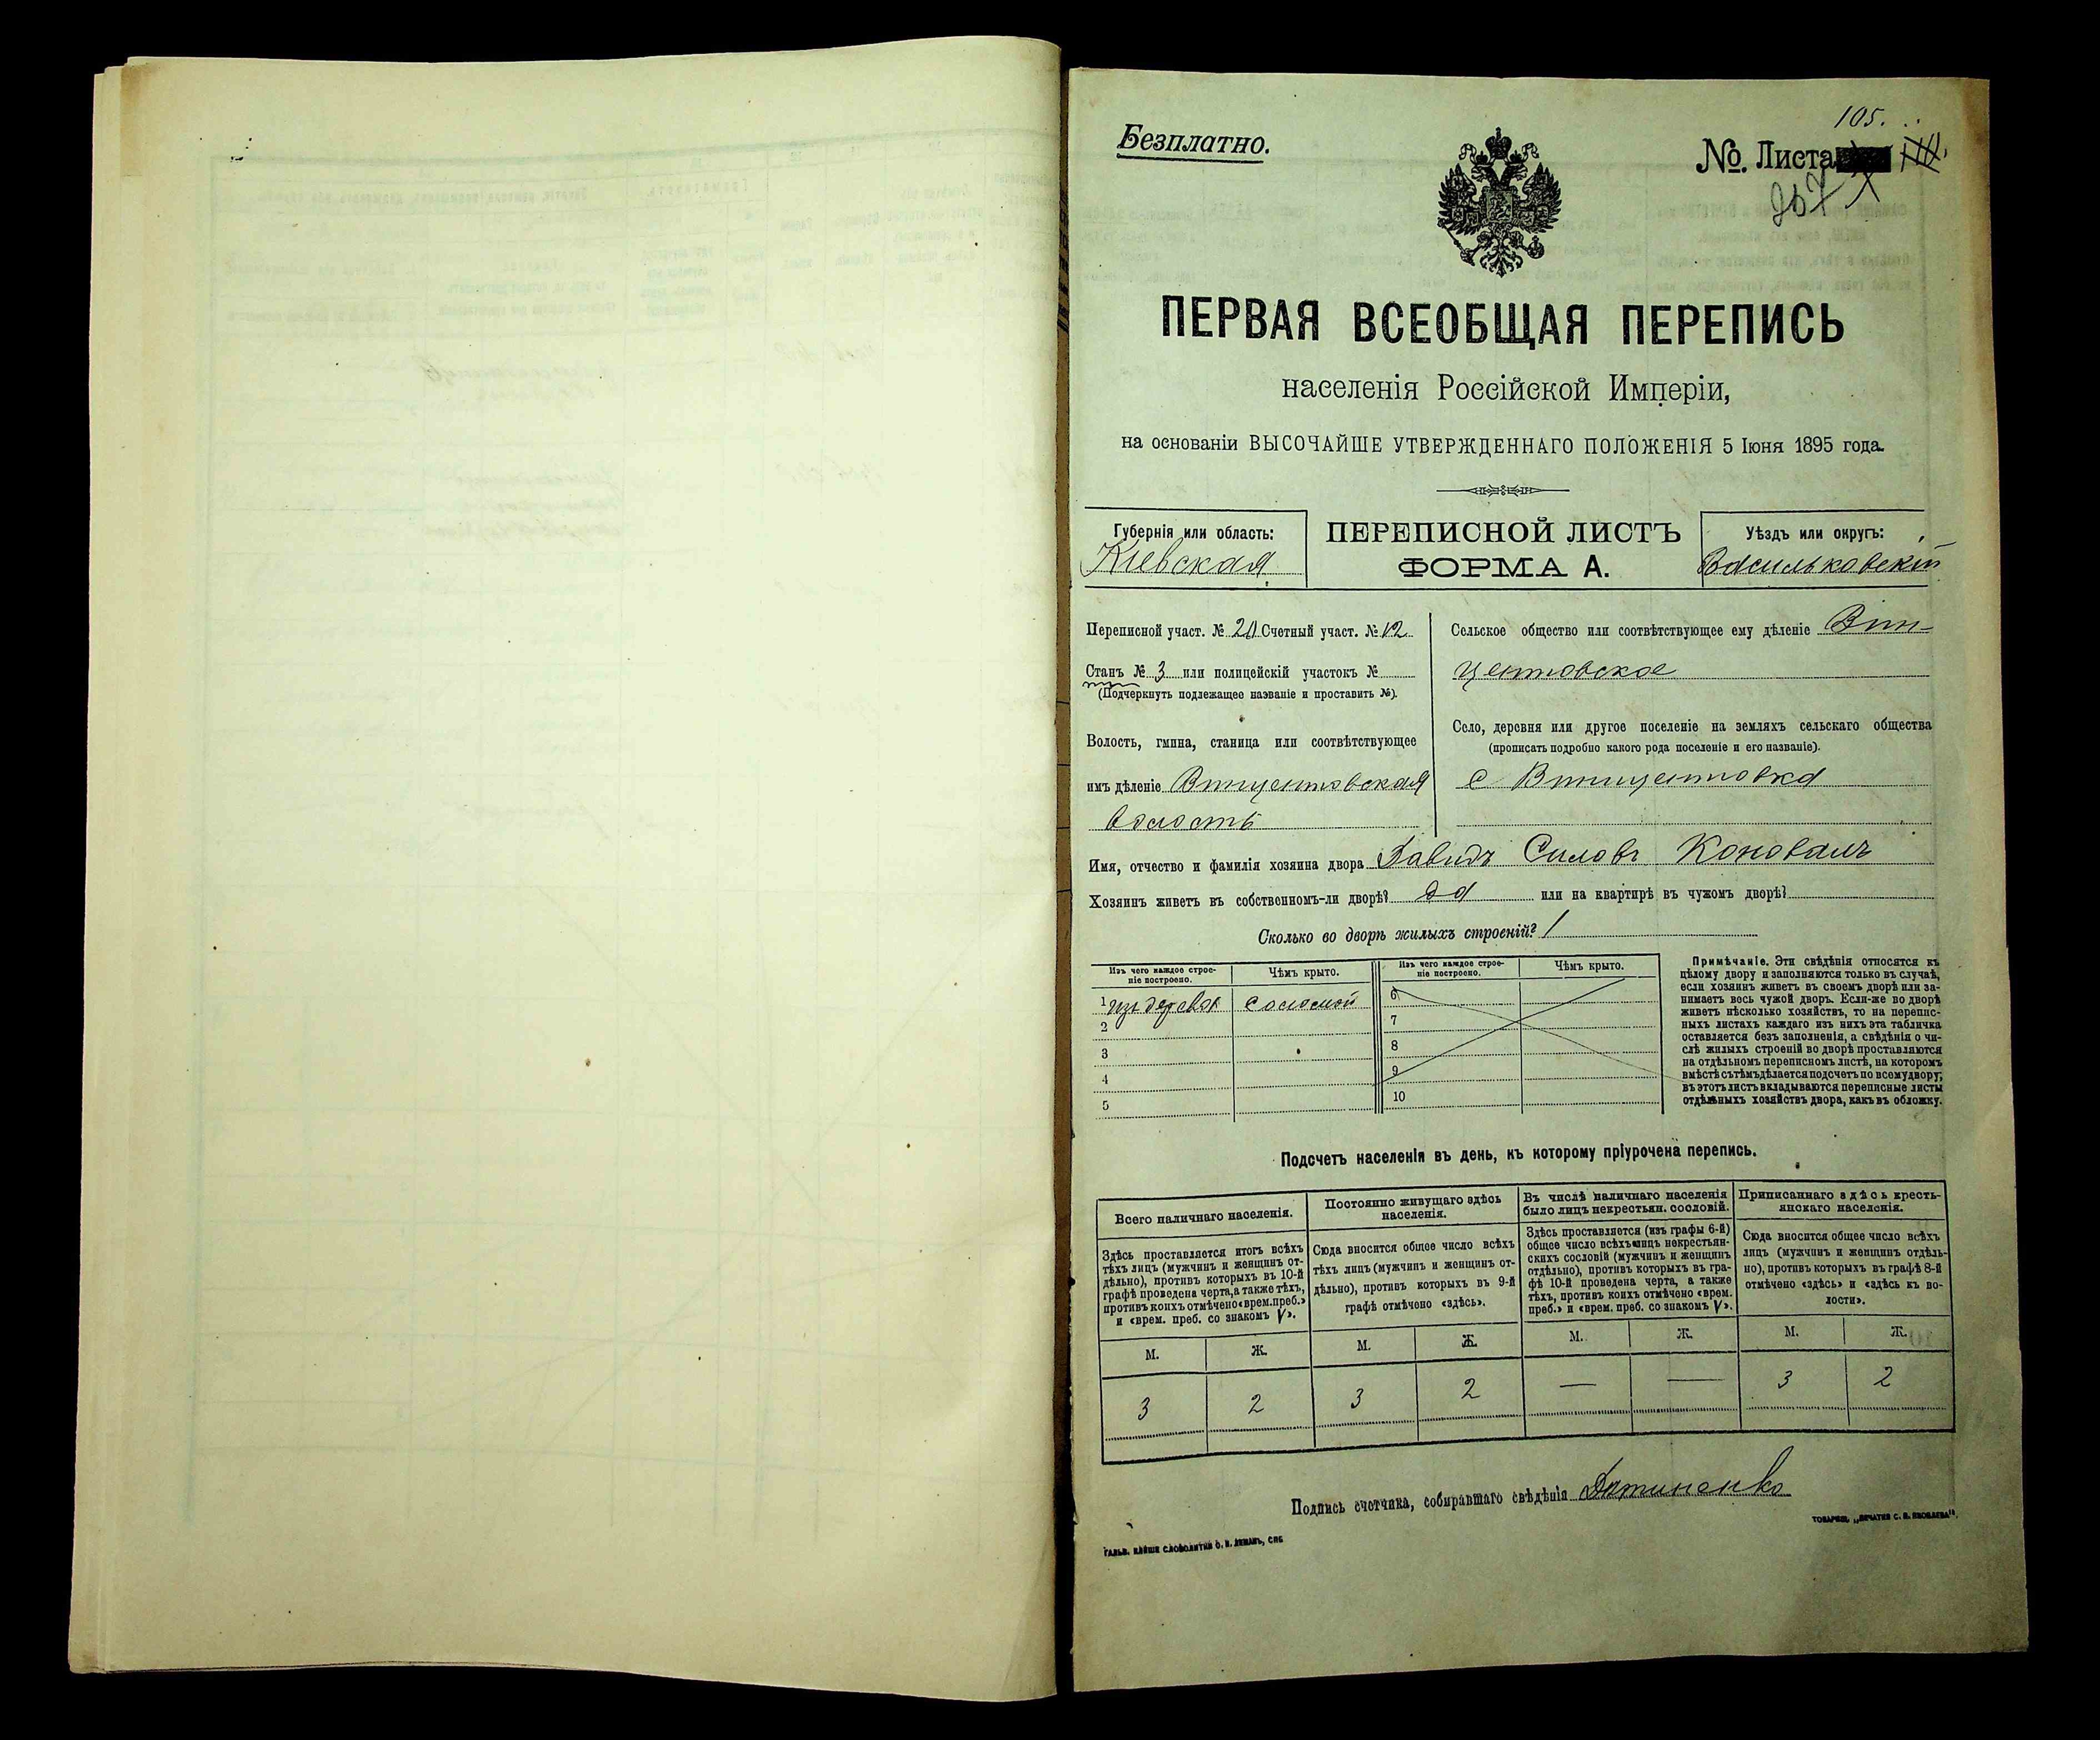 105.
Безплатно.
№. Листа
267
ПЕРВАЯ ВСЕОБЩАЯ ПЕРЕПИСЬ
населенія Россійской Имперіи,
на основаніи ВЫСОЧАЙШЕ УТВЕРЖДЕННАГО ПОЛОЖЕНІЯ 5 Іюня 1895 года.
Губернія или область:
Кіевская
ПЕРЕПИСНОЙ ЛИСТЪ
ФОРМА А.
Уѣздъ или округъ:
Васильковскій
Переписной участ. № 20 Счетный участ. № 12
Станъ № 3 или полицейскій участокъ №
(Подчеркнуть подлежащее названіе и проставить №).
Волость, гмина, станица или соотвѣтствующее
имъ дѣленіе Винцентовская
волость
Сельское общество или соотвѣтствующее ему дѣленіе Вин-
центовское
Село, деревня или другое поселеніе на земляхъ сельскаго общества
(прописать подробно какого рода поселеніе и его названіе).
с Винцентовка
Имя, отчество и фамилія хозяина двора Давидъ Силовъ Коновалъ
Хозяинъ живетъ въ собственномъ-ли дворѣ? да или на квартирѣ въ чужомъ дворѣ?
Сколько во дворѣ жилыхъ строеній? 1
Изъ чего каждое строе-
ніе построено.
Чѣмъ крыто.
Изъ чего каждое строе-
ніе построено.
Чѣмъ крыто.
1 изъ дерева соломой
2
3
4
5
6
7
8
9
10
Примѣчаніе. Эти свѣдѣнія относятся къ
цѣлому двору и заполняются только въ случаѣ,
если хозяинъ живетъ въ своемъ дворѣ или за-
нимаетъ весь чужой дворъ. Если-же во дворѣ
живетъ нѣсколько хозяйствъ, то на перепис-
ныхъ листахъ каждаго изъ нихъ эта табличка
оставляется безъ заполненія, а свѣдѣнія о чи-
слѣ жилыхъ строеній во дворѣ проставляются
на отдѣльномъ переписномъ листѣ, на которомъ
вмѣстѣ съ тѣмъ дѣлается подсчетъ по всему двору;
въ этотъ листъ вкладываются переписные листы
отдѣльныхъ хозяйствъ двора, какъ въ обложку.
Подсчетъ населенія въ день, къ которому пріурочена перепись.
Всего наличнаго населенія.
Здѣсь проставляется итогъ всѣхъ
тѣхъ лицъ (мужчинъ и женщинъ от-
дѣльно), противъ которыхъ въ 10-й
графѣ проведена черта, а также тѣхъ,
противъ коихъ отмѣчено «врем. преб.»
и «врем. преб. со знакомъ V».
Постоянно живущаго здѣсь
населенія.
Сюда вносится общее число всѣхъ
тѣхъ лицъ (мужчинъ и женщинъ от-
дѣльно), противъ которыхъ въ 9-й
графѣ отмѣчено «здѣсь».
Въ числѣ наличнаго населенія
было лицъ некрестьян. сословій.
Здѣсь проставляется (изъ графы 6-й)
общее число всѣхъ лицъ некрестьян-
скихъ сословій (мужчинъ и женщинъ
отдѣльно), противъ которыхъ въ гра-
фѣ 10-й проведена черта, а также
тѣхъ, противъ коихъ отмѣчено «врем.
преб.» и «врем. преб. со знакомъ V».
Приписаннаго здѣсь кресть-
янскаго населенія.
Сюда вносится общее число всѣхъ
лицъ (мужчинъ и женщинъ отдѣль-
но), противъ которыхъ въ графѣ 8-й
отмѣчено «здѣсь» и «здѣсь къ во-
лости».
М. Ж. М. Ж. М. Ж. М. Ж.
3 2 3 2 — — 3 2
Подпись счетчика, собиравшаго свѣдѣнія